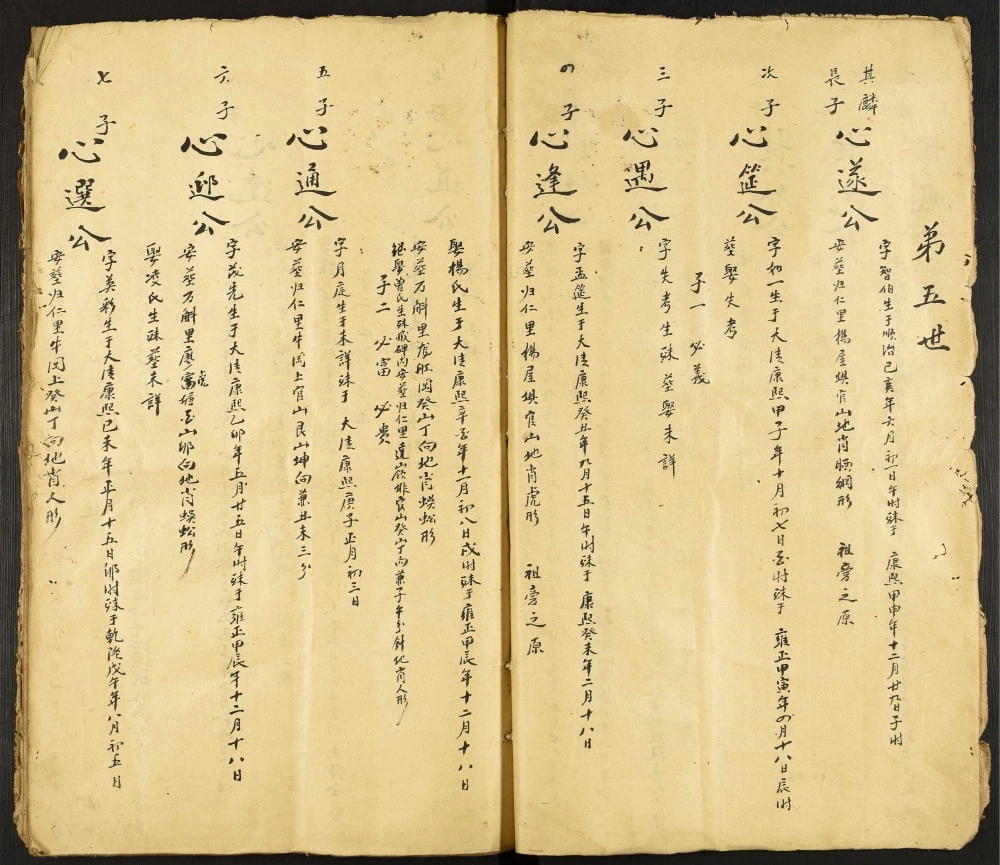 第五世
其麟
長子
心遂公
字智伯生于順治己亥年六月初一日午时殁于 康熙甲申年十二月廿九日子时
安葬归仁里楊屋垻官山地肖晒網形 祖旁之原
次子
心筵公
字和一生于大清康熙甲子年十月初七日亥时殁于 雍正甲寅年四月十八日辰时
葬娶失考
子一 必義
三子
心遇公
字失考生殁葬娶未詳
四子
心逢公
字孟筵生于大清康熙癸丑年九月十五日午时殁于 康熙癸未年二月十八日
安葬归仁里楊屋垻官山地肖虎形 祖旁之原
娶楊氏生于大清康熙辛亥年十一月初八日戌时殁于雍正甲辰年十二月十八日
安葬万斛里 岡癸山丁向地肖蜈蚣形
継娶曽氏生殁碑内安葬归仁里 官山癸山丁向兼子午分針地肖人形
子二 必富 必贵
五子
心通公
字月庭生于未詳殁于 大清康熙庚子正月初三日
安葬归仁里牛岡上官山艮山坤向兼丑未三分
六子
心邺公
字茂先生于大清康熙乙卯年五月廿五日午时殁于雍正甲辰年十二月十八日
安葬万斛里廖 山卯向地肖蜈蚣形
虎
娶凌氏生殁葬未詳
七子
心選公
字英彩生于大清康熙己未年正月十五日卯时殁于乾隆戊午年八月初五日
安葬归仁里牛岡上癸山丁向地肖人形